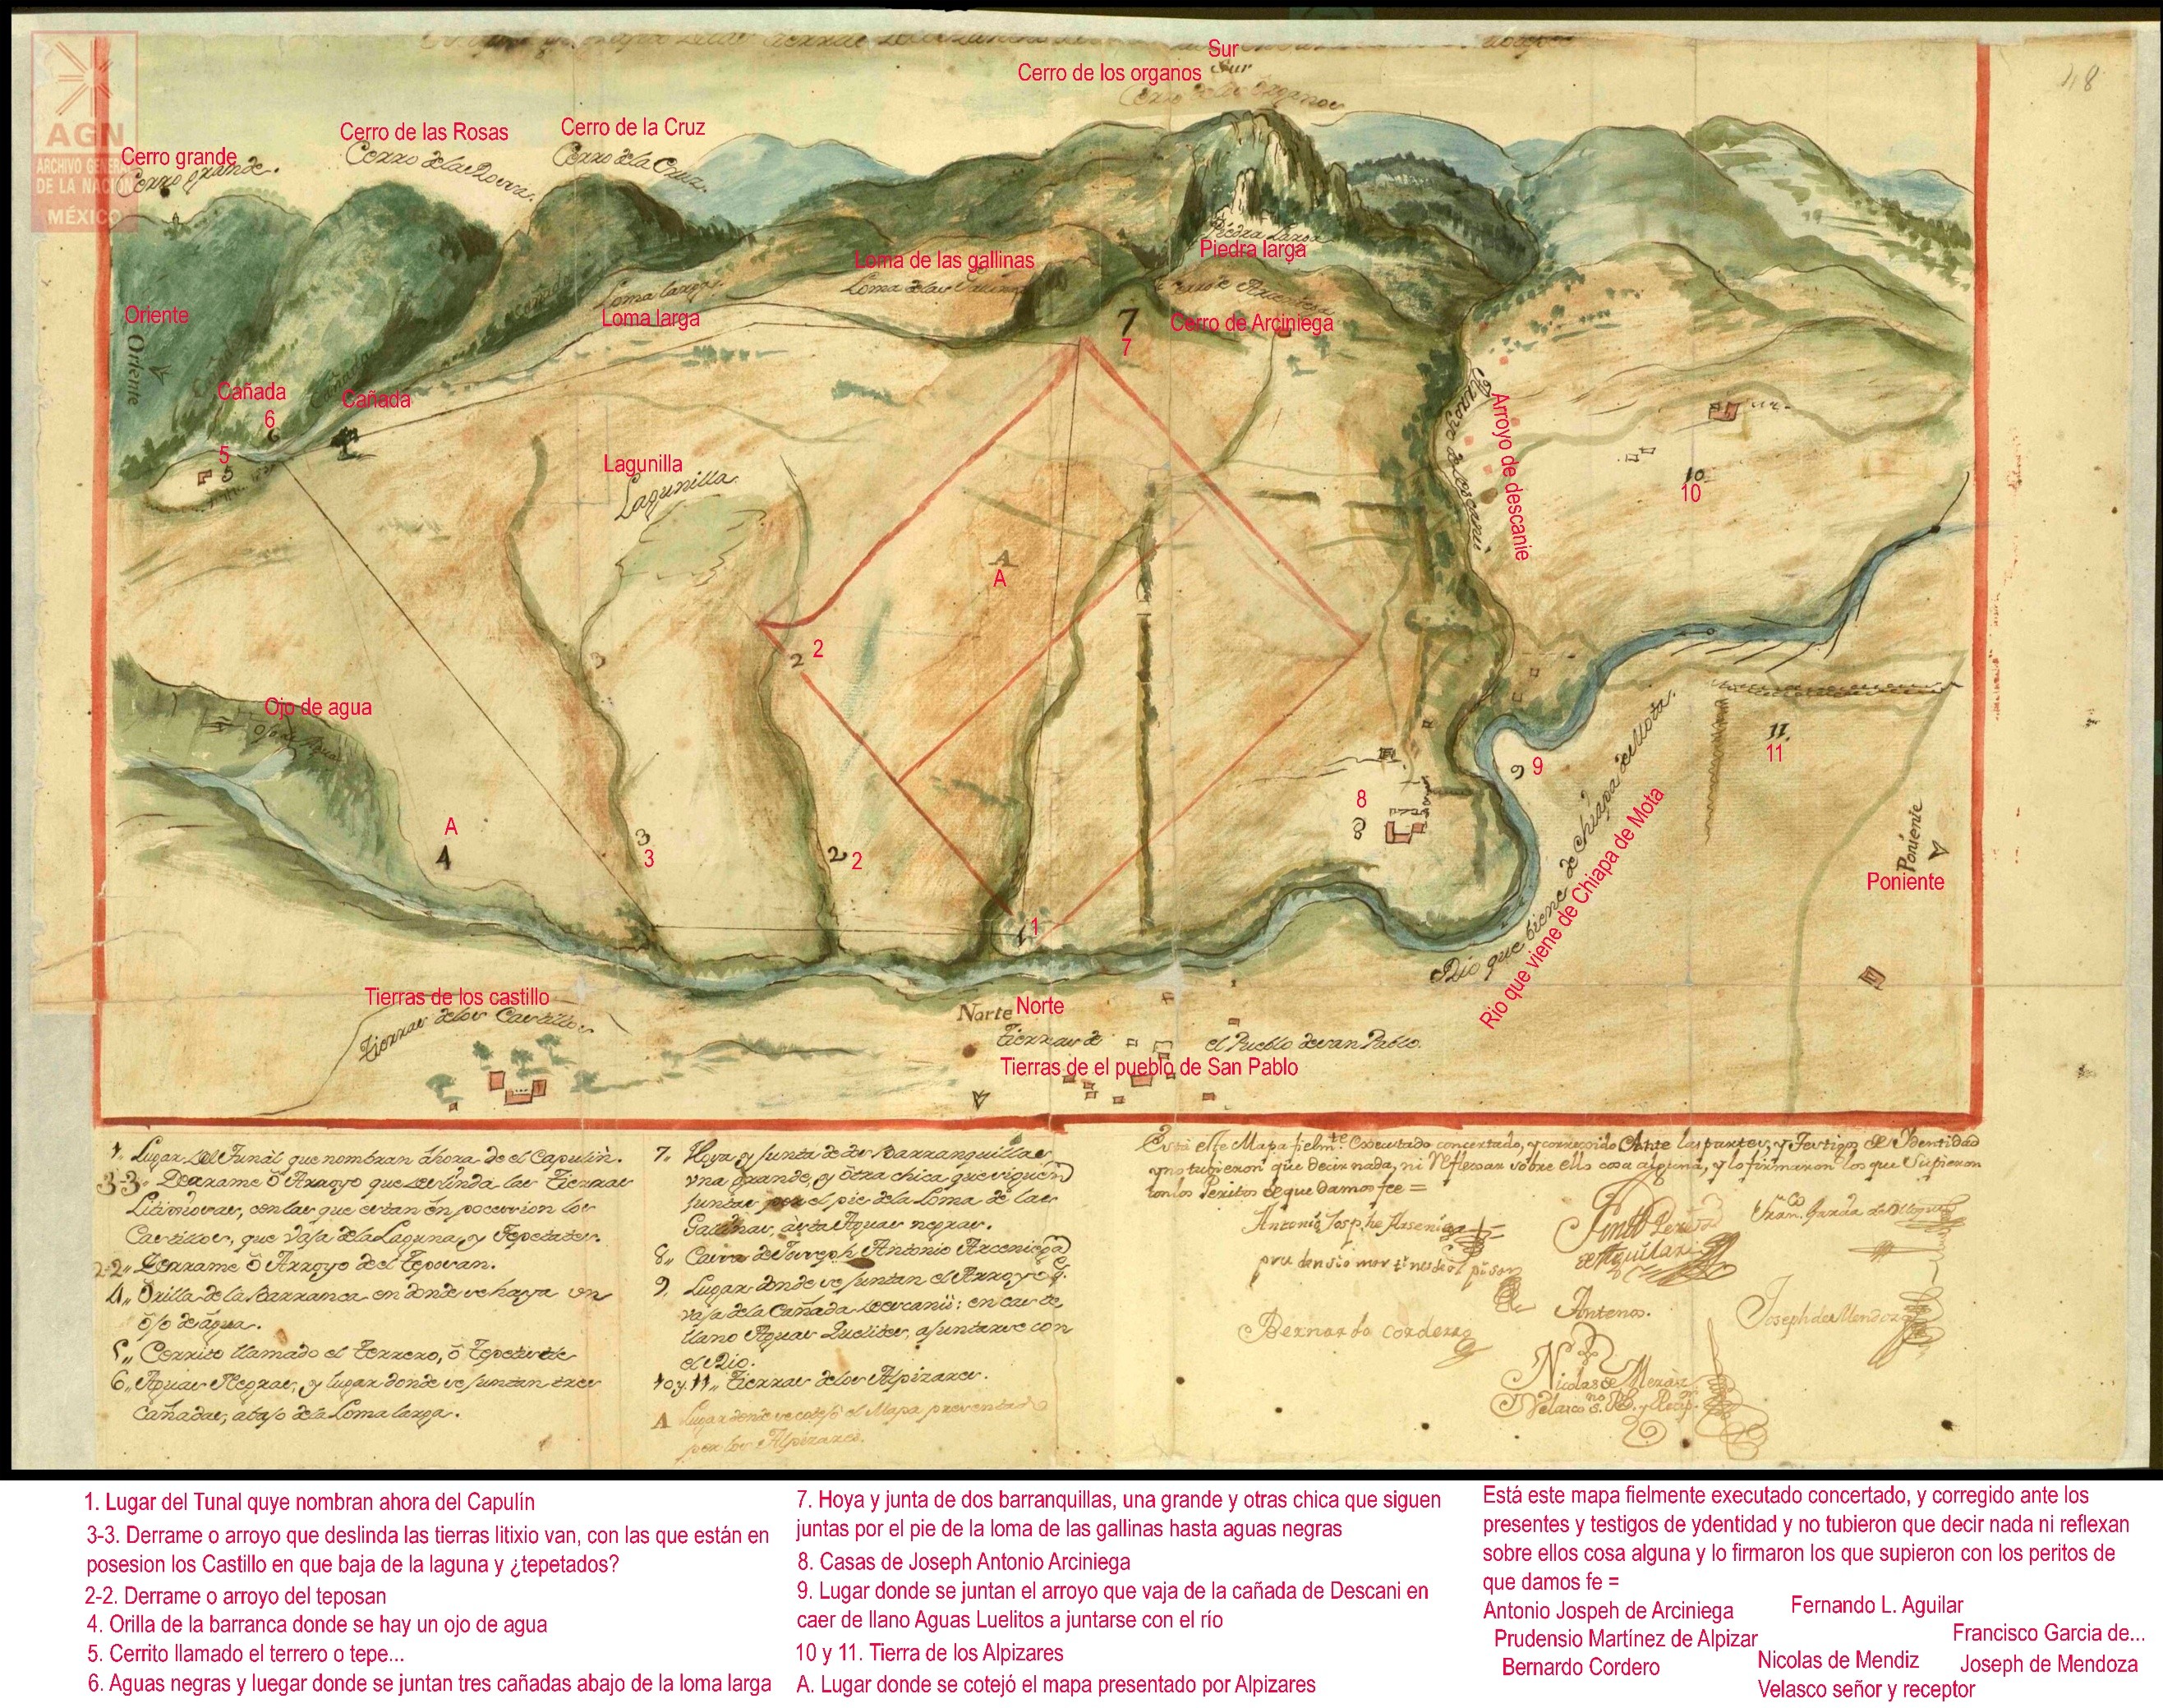 48
Sur
Cerro de los organos
Sur
Cerro de los Organos
AGN
ARCHIVO GENERAL
DE LA NACIÓN
MÉXICO
Cerro grande
Cerro grande.
Cerro de las Rosas
Cerro de las Rosas.
Cerro de la Cruz
Cerro de la Cruz.
Piedra Larga
Piedra larga
Loma de las gallinas
Loma de las Gallinas
Loma larga.
Loma larga
7
7
Cerro de Arciniega
Oriente
Oriente
Cañada
6
6
Cañada
Cañada
5
5
Lagunilla
Lagunilla
A
A
Arroyo de descanie
10
10
2
2
3
Ojo de agua
Ojo de Agua
A
4
3
3
2
2
1
1
8
8
9
9
11.
11
Rio que biene de Chiapa de Mota.
Rio que viene de Chiapa de Mota
Poniente
Poniente
Tierras de los castillo
Tierras de los Castillos
Norte
Norte
Tierras de el Pueblo de san Pablo.
Tierras de el pueblo de San Pablo
1,, Lugar del Tunál que nombran áhora de el Capulin.
3-3,, Derrame ô Arroyo que deslinda las Tierras
Litixiosas, con las que estan en posession los
Castillos, que vaja de la Laguna, y Tepetates.
2-2,, Derrame ô Arroyo de el Teposan.
4,, Orilla de la Barranca en donde se haya un
ôjo de água.
5,, Cerrito llamado el Terrero, ô
6,, Aguas Negras, y lugar donde se juntan tres
Cañadas, abajo de la Loma larga.
7,, Hoya y junta de dos Barranquillas
una grande, y ôtra chica que siguen
juntas por el pie de la Loma de las
Gallinas, Aguas negras.
8,, Casas de Joseph Antonio Arceniega
9,, Lugar donde se juntan el Arroyo q.
vaja de la Cañada en
llano Aguas a juntarse con
el Rio.
10 y 11,, Tierras de los Alpizares.
A Lugar donde se cotejó el Mapa presentado
por los Alpizares.
Está este Mapa fielm.te Executado concertado, y corregido Ante las partes, y Testigos de Ydentidad
y no tubieron que decir nada, ni Reflexar sobre ello cosa alguna, y lo firmaron los que Supieron
con los Peritos de que damos fee =
Bernardo Cordero
Antemos.
Joseph de Mendoza
Nicolas de
Velasco
1. Lugar del Tunal quye nombran ahora del Capulín
3-3. Derrame o arroyo que deslinda las tierras litixio van, con las que están en
posesion los Castillo en que baja de la laguna y ¿tepetados?
2-2. Derrame o arroyo del teposan
4. Orilla de la barranca donde se hay un ojo de agua
5. Cerrito llamado el terrero o tepe...
6. Aguas negras y luegar donde se juntan tres cañadas abajo de la loma larga
7. Hoya y junta de dos barranquillas, una grande y otras chica que siguen
juntas por el pie de la loma de las gallinas hasta aguas negras
8. Casas de Joseph Antonio Arciniega
9. Lugar donde se juntan el arroyo que vaja de la cañada de Descani en
caer de llano Aguas Luelitos a juntarse con el río
10 y 11. Tierra de los Alpizares
A. Lugar donde se cotejó el mapa presentado por Alpizares
Está este mapa fielmente executado concertado, y corregido ante los
presentes y testigos de ydentidad y no tubieron que decir nada ni reflexan
sobre ellos cosa alguna y lo firmaron los que supieron con los peritos de
que damos fe =
Antonio Jospeh de Arciniega
Fernando L. Aguilar
Prudensio Martínez de Alpizar
Francisco Garcia de...
Bernardo Cordero
Nicolas de Mendiz
Joseph de Mendoza
Velasco señor y receptor